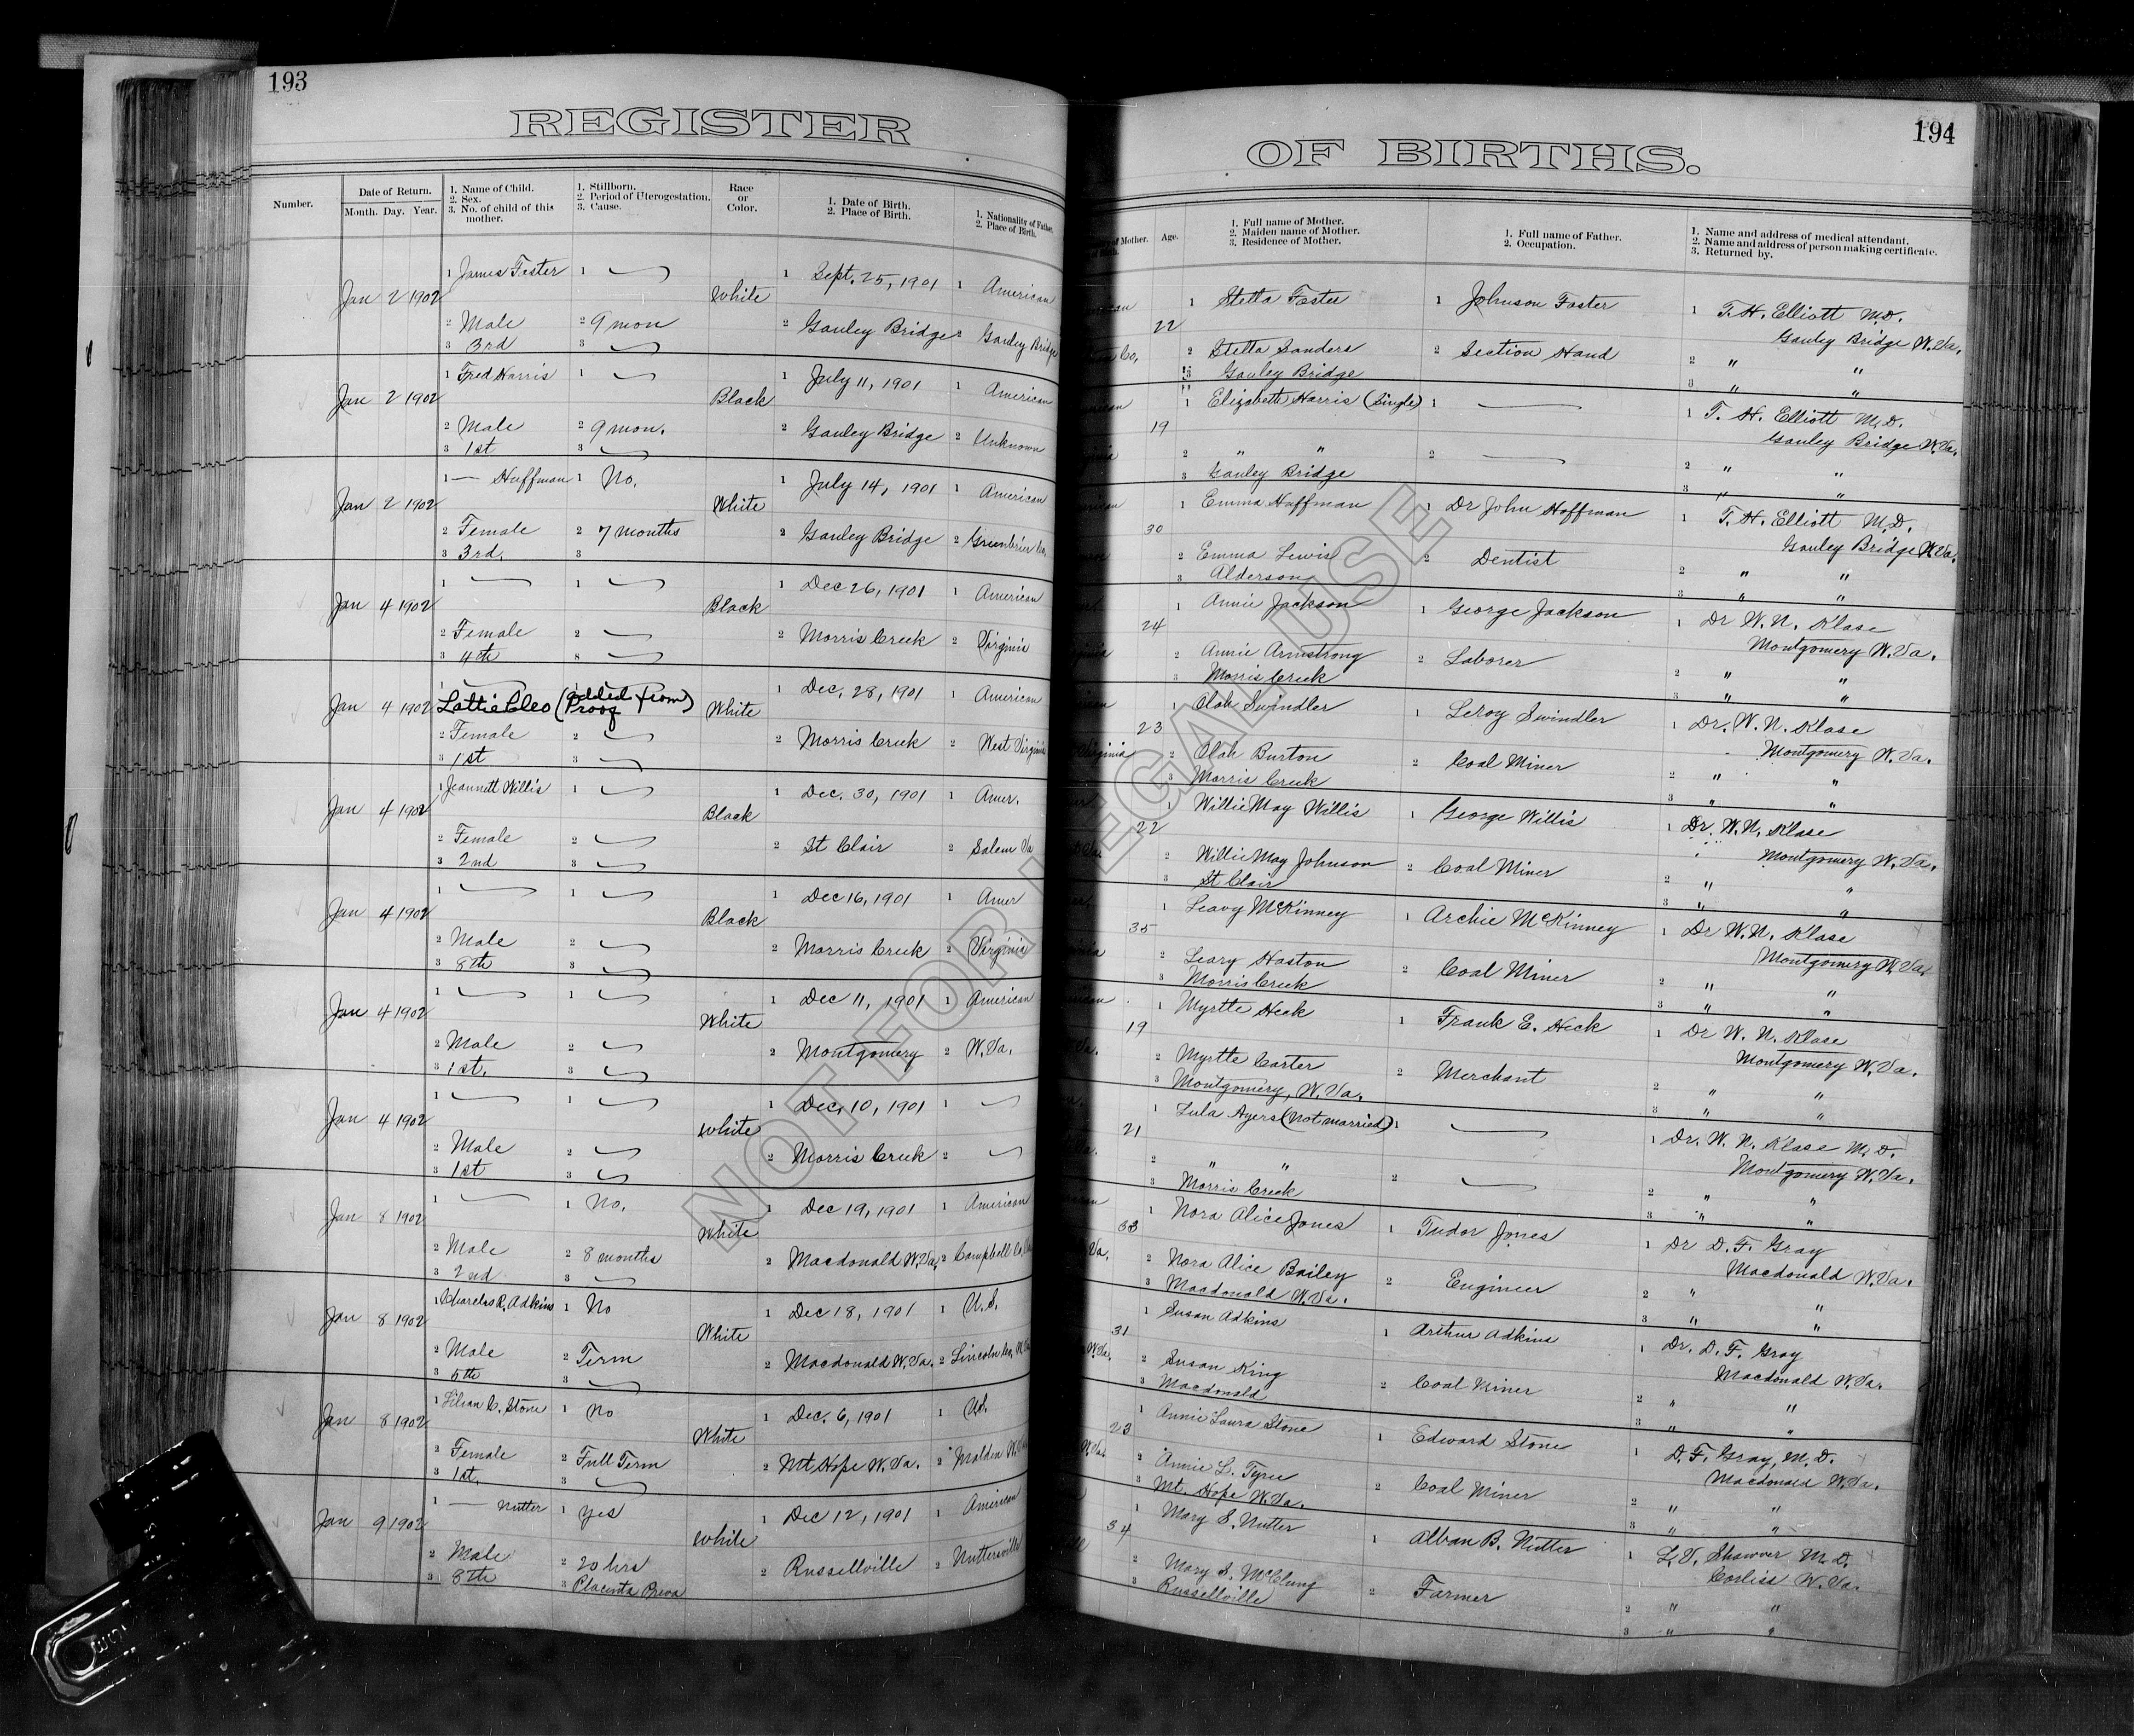 193
REGISTER
Number.
Date of Return.
Month. Day. Year.
1. Name of Child.
2. Sex.
3. No. of child of this mother.
1. Stillborn.
2. Period of Uterogestation.
3. Cause.
Race or Color.
1. Date of Birth.
2. Place of Birth.
1. Nationality of Father.
2. Place of Birth.
Jan 2 1902 1 James Fester 1 White 1 Sept. 25, 1901 1 American
2 Male 2 9 mon 2 Gauley Bridge 2 Gauley Bridge
3 3rd 3
Jan 2 1902 1 Fred Harris 1 Black 1 July 11, 1901 1 American
2 Male 2 9 mon. 2 Gauley Bridge 2 Unknown
3 1st 3
Jan 2 1902 1 — Huffman 1 No. White 1 July 14, 1901 1 American
2 Female 2 7 months 2 Gauley Bridge 2 Greenbrier Co.
3 3rd. 3
Jan 4 1902 1 1 Black 1 Dec 26, 1901 1 American
2 Female 2 2 Morris Creek 2 Virginia
3 4th 3
Jan 4 1902 1 Lottie Cleo (added from Proof) White 1 Dec. 28, 1901 1 American
2 Female 2 2 Morris Creek 2 West Virginia
3 1st 3
Jan 4 1902 1 Jeannett Willis 1 Black 1 Dec. 30, 1901 1 Amer.
2 Female 2 2 St Clair 2 Salem Va
3 2nd 3
Jan 4 1902 1 1 Black 1 Dec 16, 1901 1 Amer
2 Male 2 2 Morris Creek 2 Virginia
3 8th 3
Jan 4 1902 1 1 White 1 Dec 11, 1901 1 American
2 Male 2 2 Montgomery 2 W. Va.
3 1st. 3
Jan 4 1902 1 1 White 1 Dec. 10, 1901 1
2 Male 2 2 Morris Creek 2
3 1st 3
Jan 8 1902 1 1 No. White 1 Dec 19, 1901 1 American
2 Male 2 8 months 2 Macdonald W. Va. 2 Campbell Co.
3 2nd 3
Jan 8 1902 1 Charles R. Adkins 1 No White 1 Dec 18, 1901 1 U.S.
2 Male 2 Term 2 Macdonald W. Va. 2 Lincoln Co. W. Va
3 5th 3
Jan 8 1902 1 Lilian C. Stone 1 No White 1 Dec. 6, 1901 1 U.S.
2 Female 2 Full Term 2 Mt Hope W. Va. 2 Malden W. Va
3 1st. 3
Jan 9 1902 1 — Nutter 1 Yes White 1 Dec 12, 1901 1 American
2 Male 2 20 hrs 2 Russellville 2 Nuttersville
3 8th 3 Placenta Previa
194
OF BIRTHS.
of Mother.
Age.
1. Full name of Mother.
2. Maiden name of Mother.
3. Residence of Mother.
1. Full name of Father.
2. Occupation.
1. Name and address of medical attendant.
2. Name and address of person making certificate.
3. Returned by.
22 1 Stella Foster 1 Johnson Foster 1 T. H. Elliott M.D.
Gauley Bridge W. Va.
2 Stella Sanders 2 Section Hand 2 " "
3 Gauley Bridge 3 " "
19 1 Elizabeth Harris (Single) 1 1 T. H. Elliott M.D.
Gauley Bridge W. Va.
2 " " 2 2 " "
3 Gauley Bridge 3 " "
30 1 Emma Huffman 1 Dr John Hoffman 1 T. H. Elliott M.D.
Gauley Bridge W. Va.
2 Emma Lewis 2 Dentist 2 " "
3 Alderson 3 " "
24 1 Annie Jackson 1 George Jackson 1 Dr W. N. Klase
Montgomery W. Va.
2 Annie Armstrong 2 Laborer 2 " "
3 Morris Creek 3 " "
23 1 Olah Swindler 1 Leroy Swindler 1 Dr. W. N. Klase
Montgomery W. Va.
2 Olah Burton 2 Coal Miner 2 " "
3 Morris Creek 3 " "
22 1 Willie May Willis 1 George Willis 1 Dr. W. N. Klase
Montgomery W. Va.
2 Willie May Johnson 2 Coal Miner 2 " "
3 St Clair 3 " "
35 1 Leavy McKinney 1 Archie McKinney 1 Dr W. N. Klase
Montgomery W. Va.
2 Leary Haston 2 Coal Miner 2 " "
3 Morris Creek 3 " "
19 1 Myrtte Heck 1 Frank E. Heck 1 Dr W. N. Klase
Montgomery W. Va.
2 Myrtte Carter 2 Merchant 2 " "
3 Montgomery, W. Va. 3 " "
21 1 Lula Ayers (Not married) 1 1 Dr. W. N. Klase M.D.
Montgomery W. Va.
2 " " 2 2 " "
3 Morris Creek 3 " "
33 1 Nora Alice Jones 1 Tudor Jones 1 Dr D. F. Gray
Macdonald W. Va.
2 Nora Alice Bailey 2 Engineer 2 " "
3 Macdonald W. Va. 3 " "
31 1 Susan Adkins 1 Arthur Adkins 1 Dr. D. F. Gray
Macdonald W. Va.
2 Susan King 2 Coal Miner 2 " "
3 Macdonald 3 " "
23 1 Annie Laura Stone 1 Edward Stone 1 D. F. Gray, M.D.
Macdonald W. Va.
2 Annie L. Tyree 2 Coal Miner 2 " "
3 Mt. Hope W. Va. 3 " "
34 1 Mary S. Nutter 1 Alban B. Nutter 1 L. V. Shawver M.D.
Corliss W. Va.
2 Mary S. McClung 2 Farmer 2 " "
3 Russellville 3 " "
NOT FOR LEGAL USE